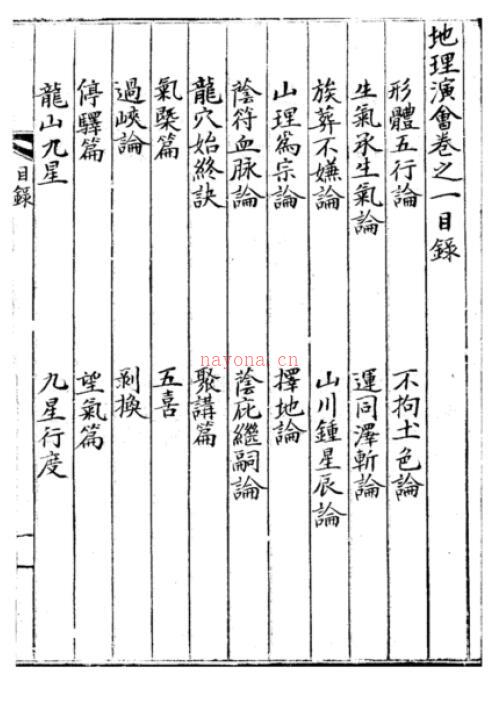 地理演會卷之一目錄
形體五行論 不拘土色論
生氣承生氣論 運同澤斬論
族葬不嫌論 山川鍾星辰論
山理為宗論 擇地論
蔭符血脉論 蔭庇繼嗣論
龍穴始終訣 聚講篇
氣槩篇 五喜
過峽論 剥換
停驛篇 望氣篇
龍山九星 九星行度
目錄
一
nayona.cn